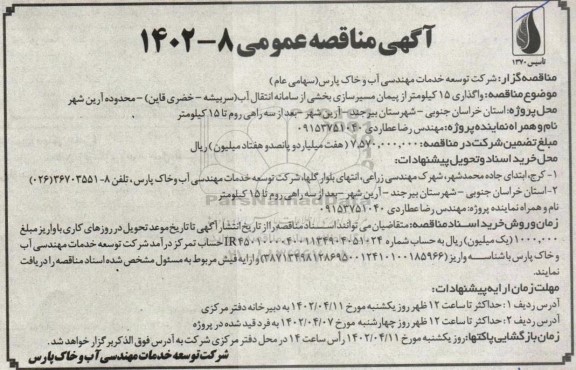 آگهی مناقصه عمومی ۸-۱۴۰۲
تاسیس ۱۳۷۰
مناقصه گزار: شرکت توسعه خدمات مهندسی آب و خاک پارس (سهامی عام)
موضوع مناقصه: واگذاری ۱۵ کیلومتر از پیمان مسیرسازی بخشی از سامانه انتقال آب (سربیشه - خضری قاین) - محدوده آرین شهر
محل پروژه: استان خراسان جنوبی - شهرستان بیرجند - آرین شهر - بعد از سه راهی روم تا ۱۵ کیلومتر
نام و همراه نماینده پروژه: مهندس رضا عطاردی ۰۹۱۵۳۷۵۱۰۴۰
مبلغ تضمین شرکت در مناقصه: ۷,۵۷۰,۰۰۰,۰۰۰ (هفت میلیارد و پانصد و هفتاد میلیون) ریال
محل خرید اسناد و تحویل پیشنهادات:
۱- کرج، ابتدای جاده محمدشهر، شهرک مهندسی زراعی، انتهای بلوار گلها، شرکت توسعه خدمات مهندسی آب و خاک پارس، تلفن ۸-۳۶۷۰۳۵۵۱ (۰۲۶)
۲- استان خراسان جنوبی - شهرستان بیرجند - آرین شهر - بعد از سه راهی روم تا ۱۵ کیلومتر
نام و همراه نماینده پروژه: مهندس رضا عطاردی ۰۹۱۵۳۷۵۱۰۴۰
زمان و روش خرید اسناد مناقصه: متقاضیان می توانند اسناد مناقصه را از تاریخ انتشار آگهی تا تاریخ موعد تحویل در روزهای کاری با واریز مبلغ
۱۰۰۰۰۰۰ (یک میلیون) ریال به حساب شماره IR۴۵۰۱۰۰۰۰۴۰۰۱۱۳۴۹۰۴۰۵۱۰۲۴ حساب تمرکز درآمد شرکت توسعه خدمات مهندسی آب
و خاک پارس با شناسه واریز (۳۸۷۱۳۴۹۸۱۳۸۶۹۵۰۰۱۲۴۱۰۱۰۰۱۸۵۹۶۶) و ارایه فیش مربوط به مسئول مشخص شده اسناد مناقصه را دریافت
نمایند.
مهلت زمان ارایه پیشنهادات:
آدرس ردیف ۱: حداکثر تا ساعت ۱۲ ظهر روز یکشنبه مورخ ۱۴۰۲/۰۴/۱۱ به دبیرخانه دفتر مرکزی
آدرس ردیف ۲: حداکثر تا ساعت ۱۲ ظهر روز چهارشنبه مورخ ۱۴۰۲/۰۴/۰۷ به فرد قید شده در پروژه
زمان بازگشایی پاکتها: روز یکشنبه مورخ ۱۴۰۲/۰۴/۱۱ رأس ساعت ۱۴ در محل دفتر مرکزی شرکت به آدرس فوق الذکر برگزار خواهد شد.
شرکت توسعه خدمات مهندسی آب و خاک پارس